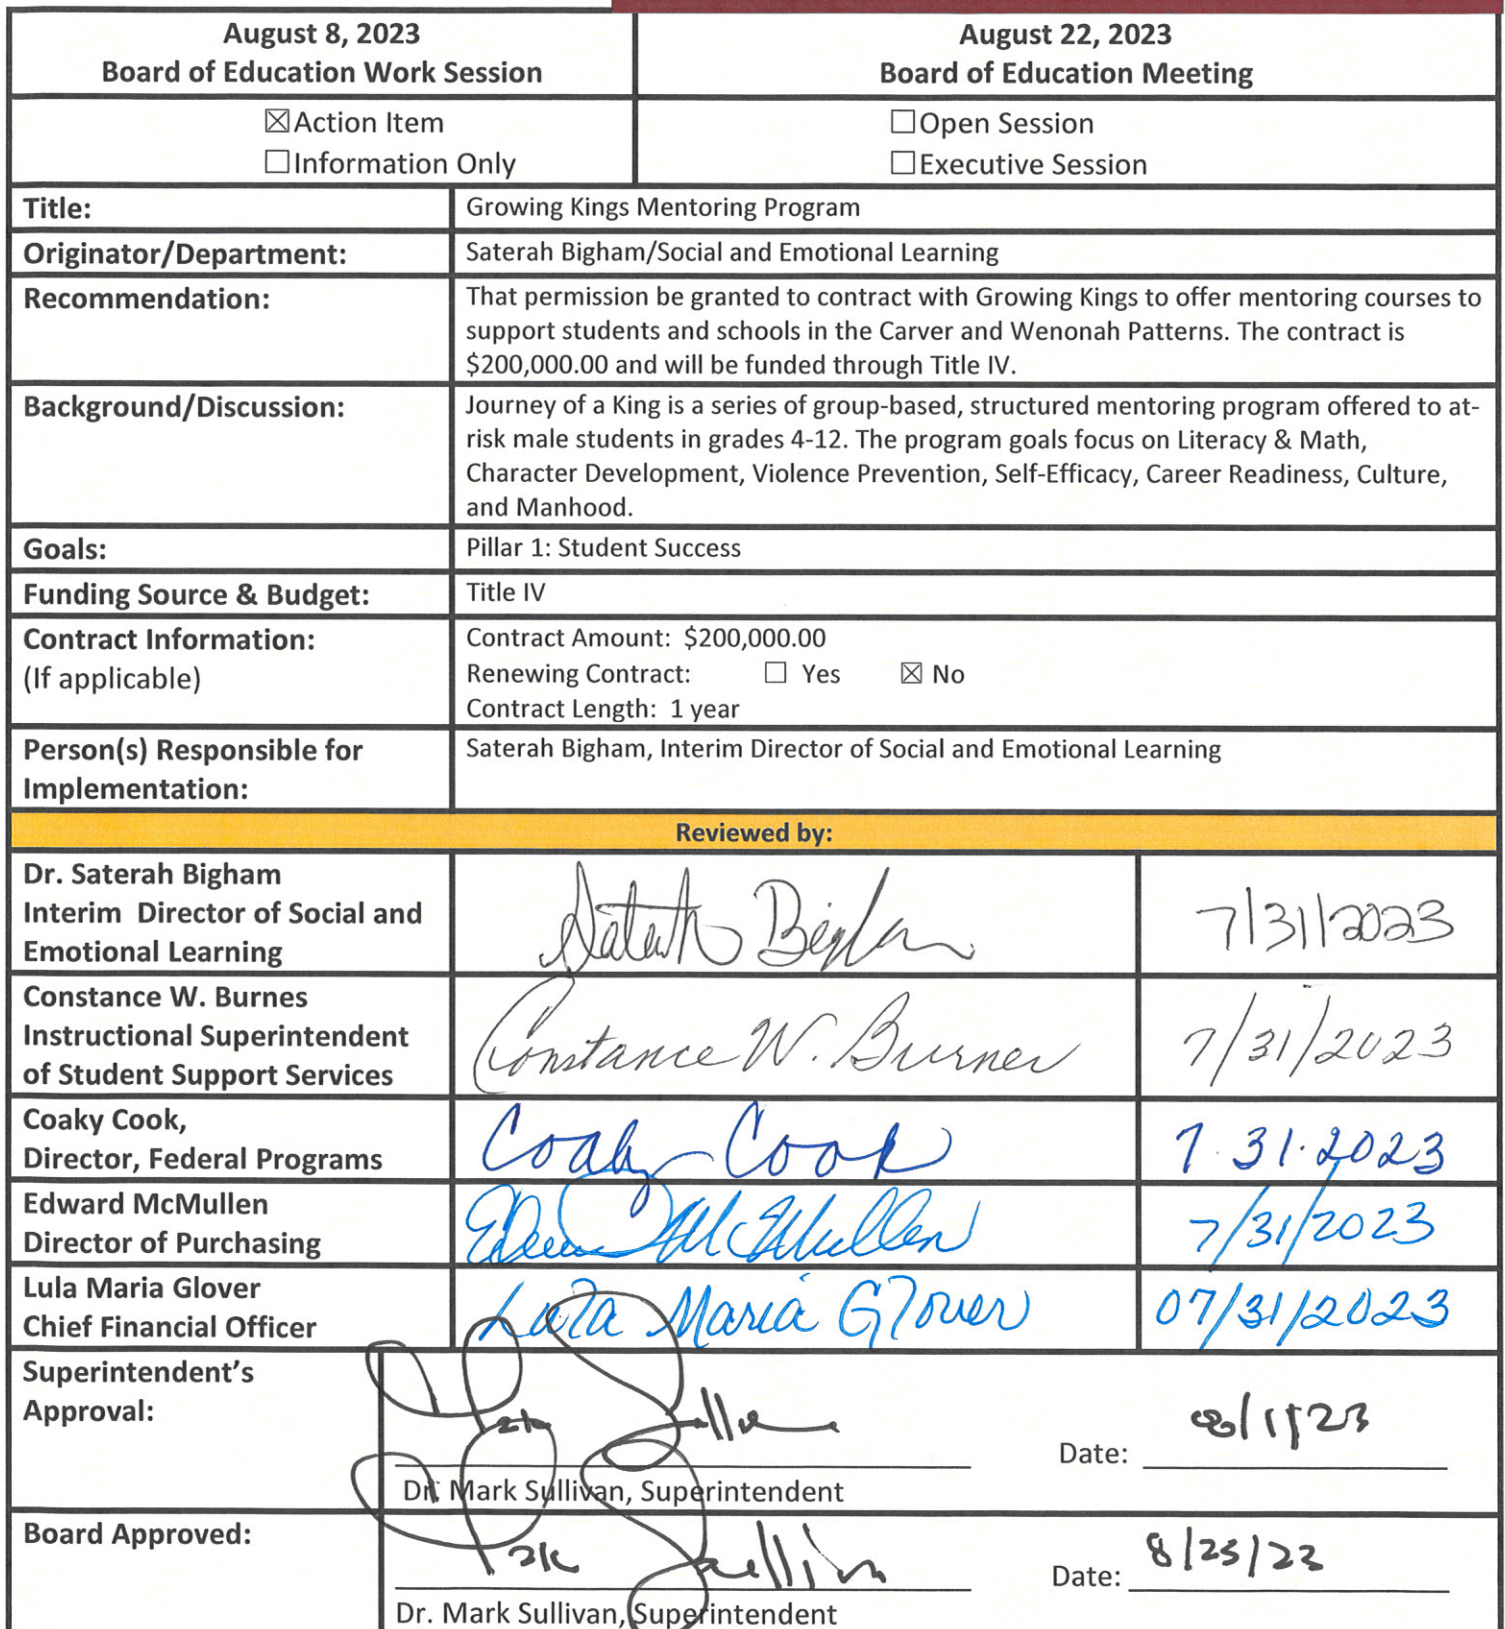 August 8, 2023
Board of Education Work Session
August 22, 2023
Board of Education Meeting
☒Action Item
☐Information Only
☐Open Session
☐Executive Session
Title:
Growing Kings Mentoring Program
Originator/Department:
Saterah Bigham/Social and Emotional Learning
Recommendation:
That permission be granted to contract with Growing Kings to offer mentoring courses to
support students and schools in the Carver and Wenonah Patterns. The contract is
$200,000.00 and will be funded through Title IV.
Background/Discussion:
Journey of a King is a series of group-based, structured mentoring program offered to at-
risk male students in grades 4-12. The program goals focus on Literacy & Math,
Character Development, Violence Prevention, Self-Efficacy, Career Readiness, Culture,
and Manhood.
Goals:
Pillar 1: Student Success
Funding Source & Budget:
Title IV
Contract Information:
(If applicable)
Contract Amount: $200,000.00
Renewing Contract: ☐ Yes ☒ No
Contract Length: 1 year
Person(s) Responsible for
Implementation:
Saterah Bigham, Interim Director of Social and Emotional Learning
Reviewed by:
Dr. Saterah Bigham
Interim Director of Social and
Emotional Learning
Saterah Bigham
7/31/2023
Constance W. Burnes
Instructional Superintendent
of Student Support Services
Constance W. Burnes
7/31/2023
Coaky Cook,
Director, Federal Programs
Coaky Cook
7.31.2023
Edward McMullen
Director of Purchasing
Edward McMullen
7/31/2023
Lula Maria Glover
Chief Financial Officer
Lula Maria Glover
07/31/2023
Superintendent's
Approval:
Mark Sullivan
Date: 8/1/23
Dr. Mark Sullivan, Superintendent
Board Approved:
Mark Sullivan
Date: 8/23/23
Dr. Mark Sullivan, Superintendent